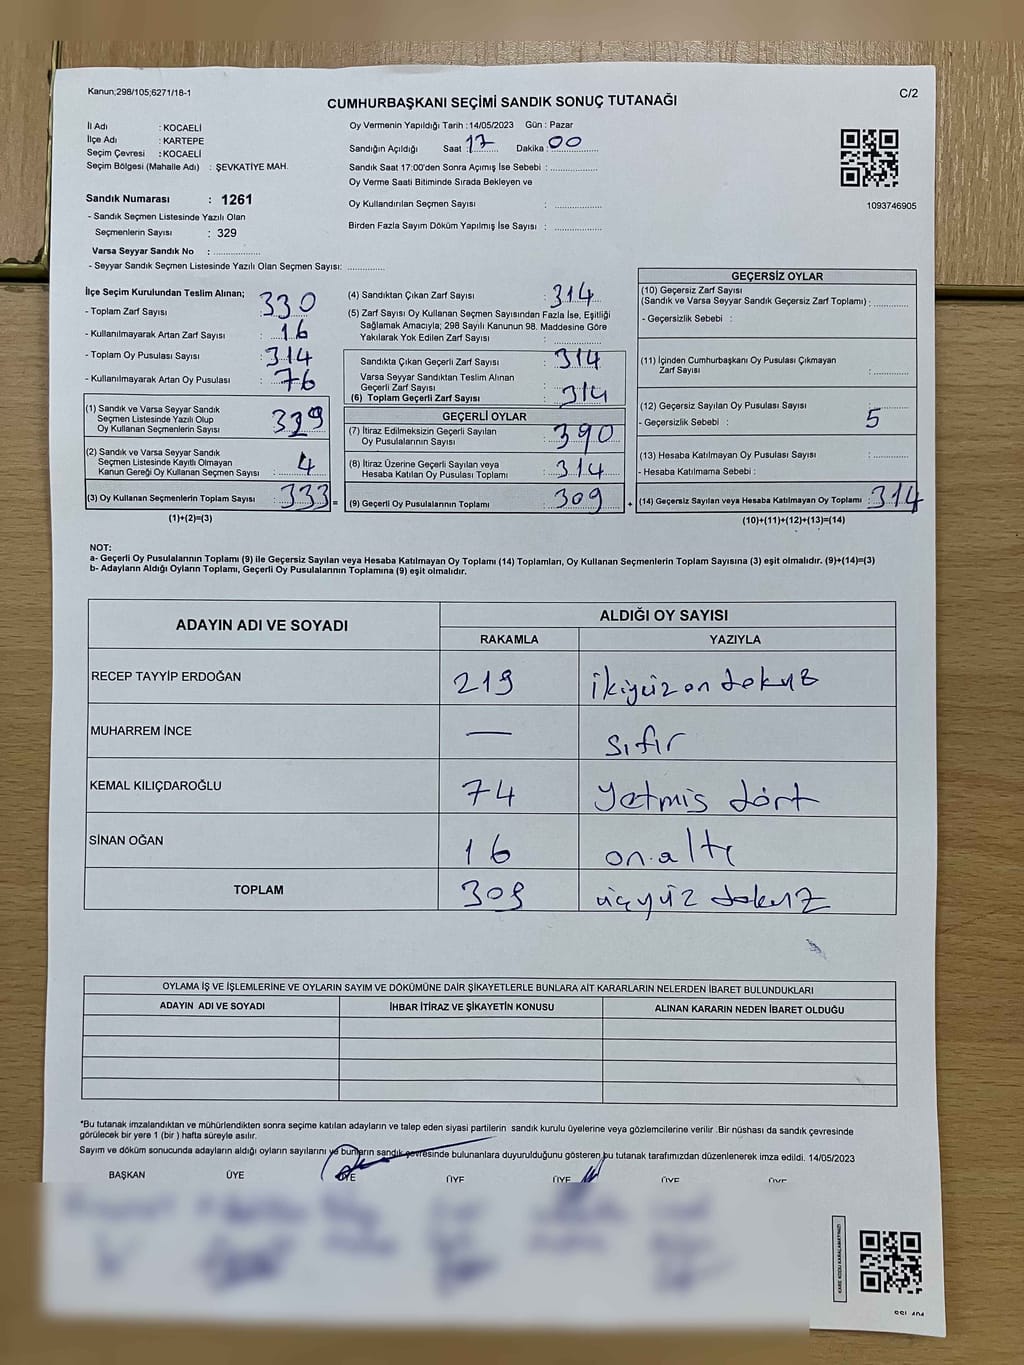 Kanun;298/105;6271/18-1
C/2
CUMHURBAŞKANI SEÇİMİ SANDIK SONUÇ TUTANAĞI
İl Adı : KOCAELİ
İlçe Adı : KARTEPE
Seçim Çevresi : KOCAELİ
Seçim Bölgesi (Mahalle Adı) : ŞEVKATİYE MAH.
Oy Vermenin Yapıldığı Tarih :14/05/2023 Gün : Pazar
Sandığın Açıldığı Saat : 17 Dakika : 00
Sandık Saat 17:00'den Sonra Açımış İse Sebebi :
Oy Verme Saati Bitiminde Sırada Bekleyen ve
Oy Kullandırılan Seçmen Sayısı :
Birden Fazla Sayım Döküm Yapılmış İse Sayısı :
1093746905
Sandık Numarası : 1261
- Sandık Seçmen Listesinde Yazılı Olan
Seçmenlerin Sayısı : 329
Varsa Seyyar Sandık No :
- Seyyar Sandık Seçmen Listesinde Yazılı Olan Seçmen Sayısı:
İlçe Seçim Kurulundan Teslim Alınan;
- Toplam Zarf Sayısı : 330
- Kullanılmayarak Artan Zarf Sayısı : 16
- Toplam Oy Pusulası Sayısı : 314
- Kullanılmayarak Artan Oy Pusulası : 76
(1) Sandık ve Varsa Seyyar Sandık
Seçmen Listesinde Yazılı Olup
Oy Kullanan Seçmenlerin Sayısı : 329
(2) Sandık ve Varsa Seyyar Sandık
Seçmen Listesinde Kayıtlı Olmayan
Kanun Gereği Oy Kullanan Seçmen Sayısı : 4
(3) Oy Kullanan Seçmenlerin Toplam Sayısı : 333 =
(1)+(2)=(3)
(4) Sandıktan Çıkan Zarf Sayısı : 314
(5) Zarf Sayısı Oy Kullanan Seçmen Sayısından Fazla İse, Eşitliği
Sağlamak Amacıyla; 298 Sayılı Kanunun 98. Maddesine Göre
Yakılarak Yok Edilen Zarf Sayısı :
Sandıkta Çıkan Geçerli Zarf Sayısı : 314
Varsa Seyyar Sandıktan Teslim Alınan
Geçerli Zarf Sayısı :
(6) Toplam Geçerli Zarf Sayısı : 314
GEÇERLİ OYLAR
(7) İtiraz Edilmeksizin Geçerli Sayılan
Oy Pusulalarının Sayısı : 390
(8) İtiraz Üzerine Geçerli Sayılan veya
Hesaba Katılan Oy Pusulası Toplamı : 314
(9) Geçerli Oy Pusulalarının Toplamı : 309 +
GEÇERSİZ OYLAR
(10) Geçersiz Zarf Sayısı
(Sandık ve Varsa Seyyar Sandık Geçersiz Zarf Toplamı) :
- Geçersizlik Sebebi :
(11) İçinden Cumhurbaşkanı Oy Pusulası Çıkmayan
Zarf Sayısı :
(12) Geçersiz Sayılan Oy Pusulası Sayısı :
- Geçersizlik Sebebi : 5
(13) Hesaba Katılmayan Oy Pusulası Sayısı :
- Hesaba Katılmama Sebebi :
(14) Geçersiz Sayılan veya Hesaba Katılmayan Oy Toplamı : 314
(10)+(11)+(12)+(13)=(14)
NOT:
a- Geçerli Oy Pusulalarının Toplamı (9) ile Geçersiz Sayılan veya Hesaba Katılmayan Oy Toplamı (14) Toplamları, Oy Kullanan Seçmenlerin Toplam Sayısına (3) eşit olmalıdır. (9)+(14)=(3)
b- Adayların Aldığı Oyların Toplamı, Geçerli Oy Pusulalarının Toplamına (9) eşit olmalıdır.
ADAYIN ADI VE SOYADI
ALDIĞI OY SAYISI
RAKAMLA YAZIYLA
RECEP TAYYİP ERDOĞAN 219 ikiyüz on dokuz
MUHARREM İNCE — sıfır
KEMAL KILIÇDAROĞLU 74 yetmiş dört
SİNAN OĞAN 16 on altı
TOPLAM 309 üçyüz dokuz
OYLAMA İŞ VE İŞLEMLERİNE VE OYLARIN SAYIM VE DÖKÜMÜNE DAİR ŞİKAYETLERLE BUNLARA AİT KARARLARIN NELERDEN İBARET BULUNDUKLARI
ADAYIN ADI VE SOYADI İHBAR İTİRAZ VE ŞİKAYETİN KONUSU ALINAN KARARIN NEDEN İBARET OLDUĞU
*Bu tutanak imzalandıktan ve mühürlendikten sonra seçime katılan adayların ve talep eden siyasi partilerin sandık kurulu üyelerine veya gözlemcilerine verilir .Bir nüshası da sandık çevresinde
görülecek bir yere 1 (bir ) hafta süreyle asılır.
Sayım ve döküm sonucunda adayların aldığı oyların sayılarını ve bunların sandık çevresinde bulunanlara duyurulduğunu gösteren bu tutanak tarafımızdan düzenlenerek imza edildi. 14/05/2023
BAŞKAN ÜYE ÜYE ÜYE ÜYE ÜYE ÜYE